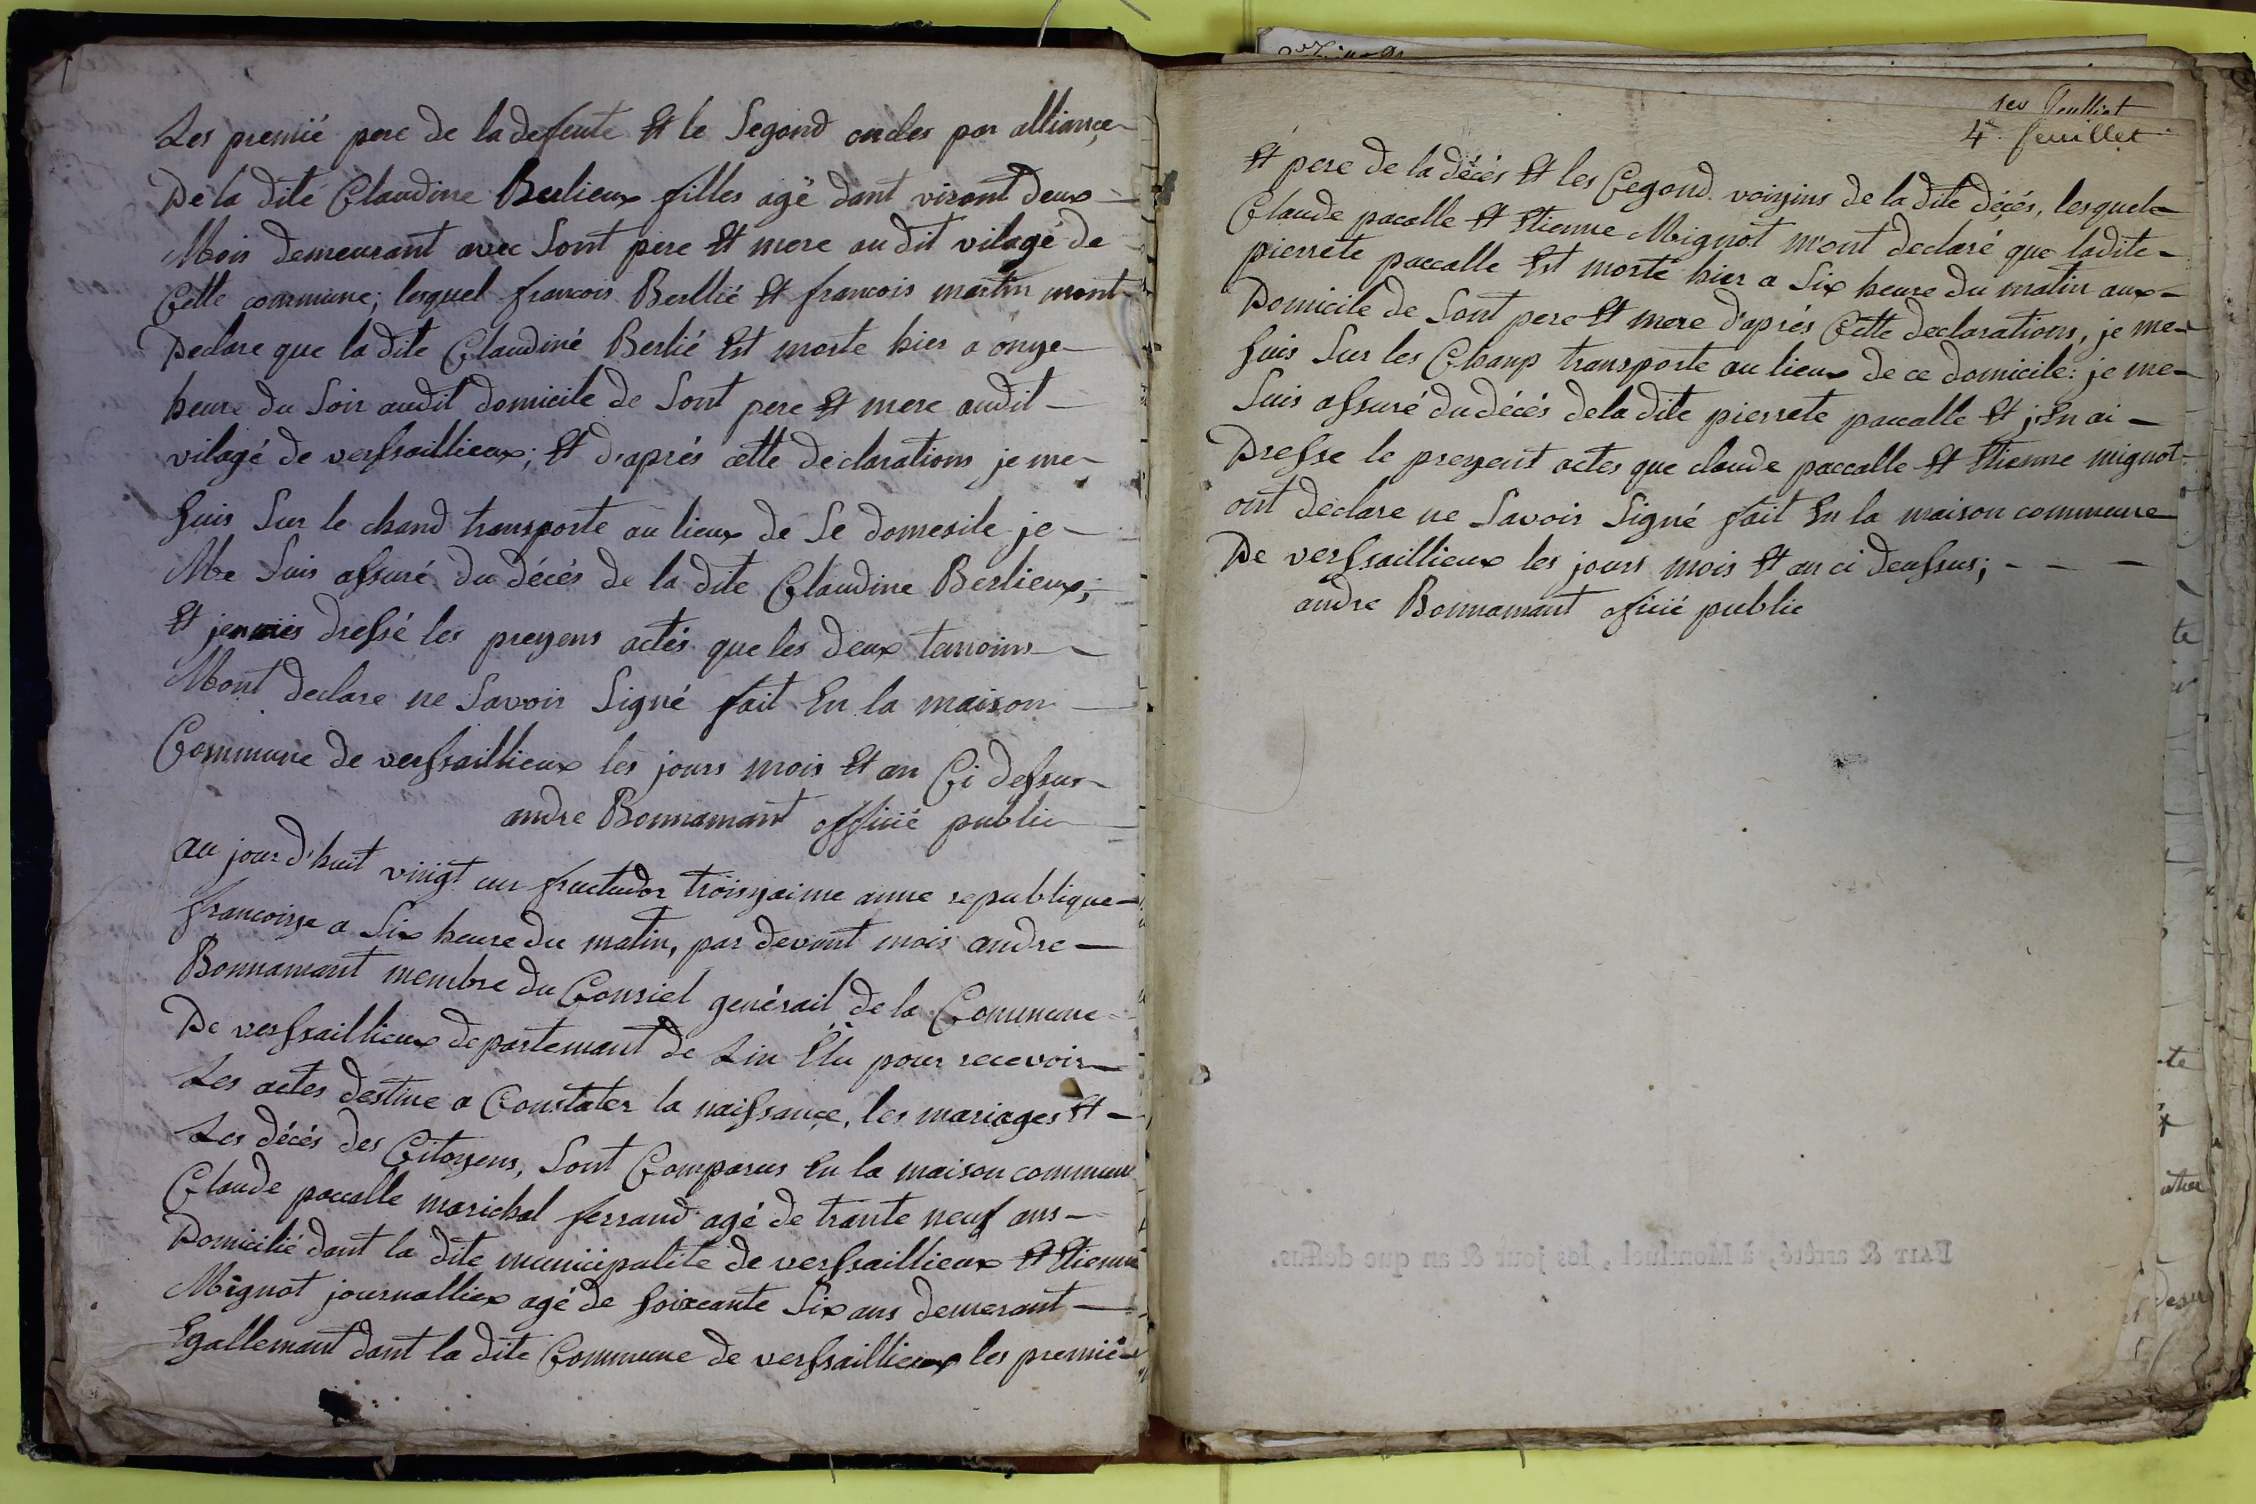 Les premié pere de la defente Et le Segond oncles par alliance
De la dite Claudine Berlieux filles agé dant viront deux
Mois demeurant avec Sont pere Et mere au dit vilage de
Cette commune; lesquel francois Berllié Et francois martin mont
Declare que la dite Claudine Berlié Est morte hier a onze
heure du Soir audit domicile de Sont pere Et mere audit
vilagé de versailleux; Et d'aprés cette declarations je me
Suis Sur le chand transporte au lieux de Se domesile je
Me Suis assuré du décés de la dite Claudine Berlieux;
Et jen dressé les prezens actés que les deux temoins
Mont declare ne Savoir Signé fait En la maison
Commune de versaillieux les jours mois Et an Ci dessus
andre Bonnamant offficié public
au jour d'huit vingt un fructudor troisyaime anne republique
francoisse a Six heure du matin, par devant mois andre
Bonnamant membre du Consiel genérail de la Commune
De versaillieux departemant de Lin Elu pour recevoir
Les actes destine a Constater la naissance, les mariages Et
Les décés des Citoyens, Sont Comparus En la maison commune
Claude paccalle marichal ferrand agé de trante neuf ans
Domicilié dant la dite municipalite de versaillieux Et Etienne
Mignot journalliex agé de Soixcante Six ans demerant
Egallemant dant la dite Commune de versaillieux les premié
4e feuillet
Et pere de la décés Et les Cegond voizins de la dite décés, lesquele
Claude pacalle Et Etienne Mignot m'ont declaré que ladite
pierrete paccalle Est morte hier a Six heure du matin aux
Domicile de Sont pere Et mere d'aprés Cette declarations, je me
Suis Sur les Champ transporte au lieux de ce domicile: je me
Suis assuré du décés de la dite pierrete paccalle Et j'En ai
Dresse le prezent actes que claude paccalle Et Etienne mignot
ont declare ne Savoir Signé fait En la maison commune
De versaillieux les jours mois Et an ci deussus;
andre Bonnamant oficié public
FAIT & arrêté, à Montluel, les jour & an que dessus.